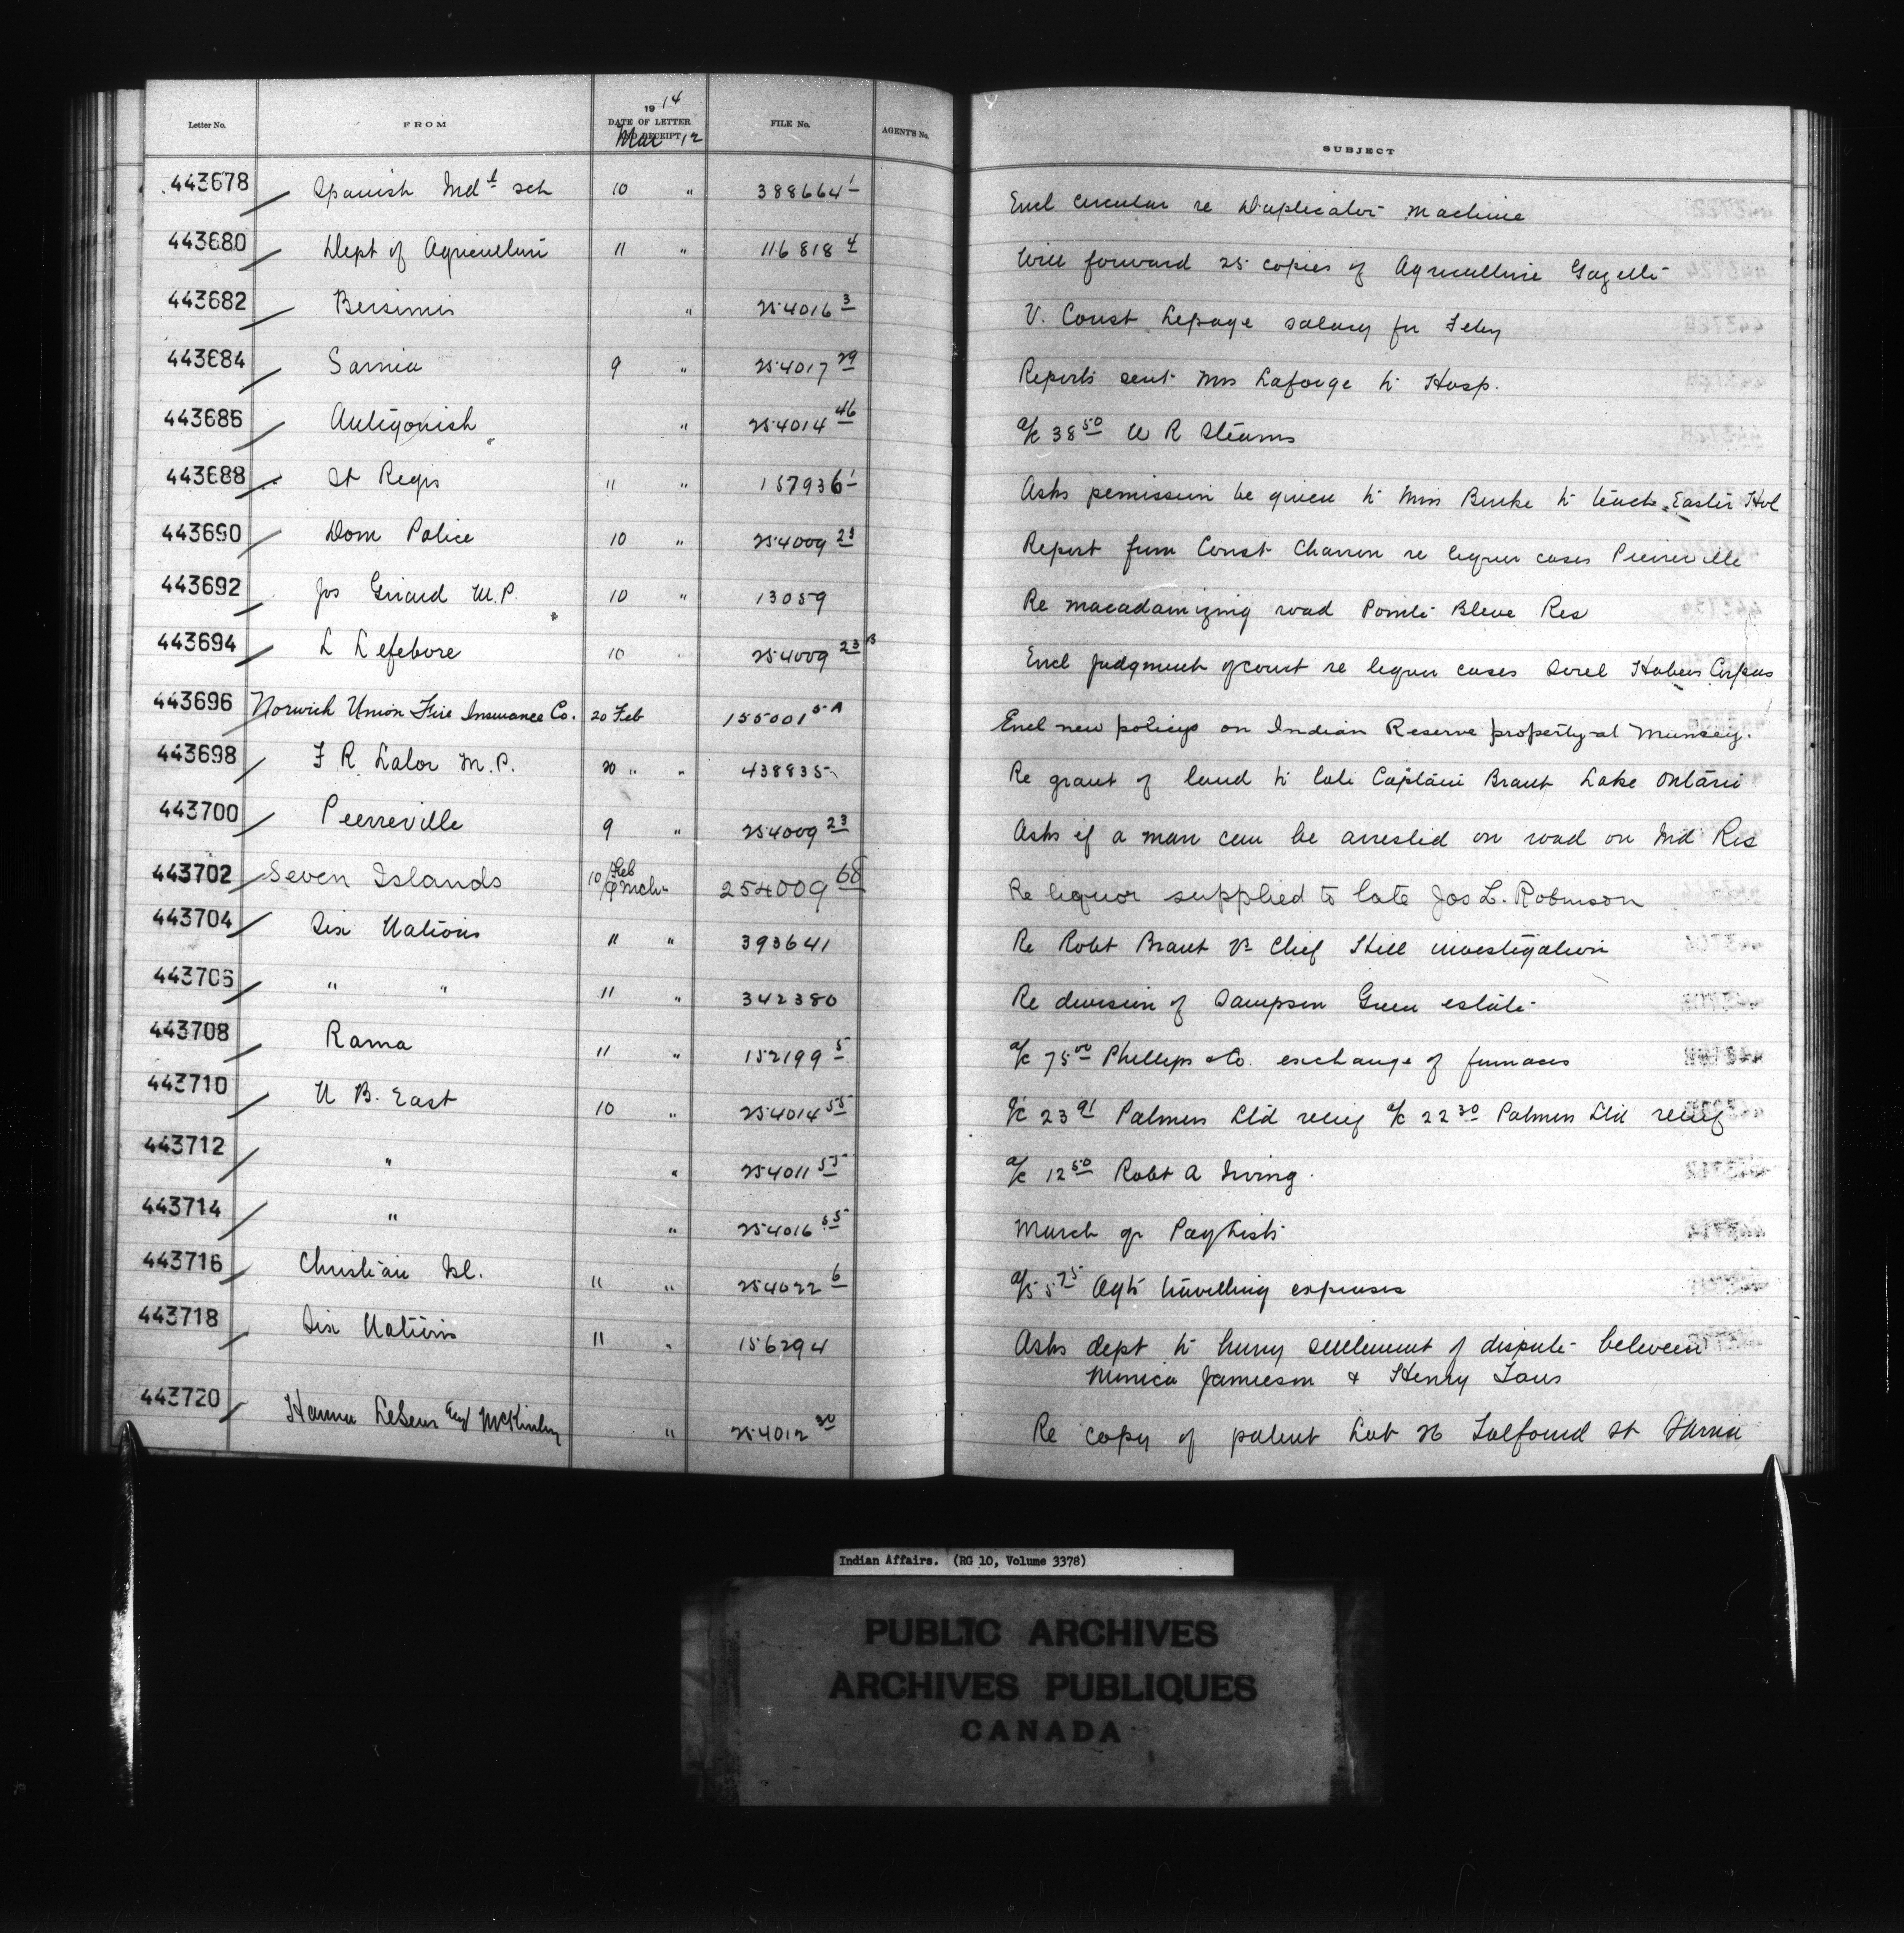 Letter No. FROM 1914 DATE OF LETTER AND RECEIPT Mar 12 FILE No. AGENT'S No. SUBJECT
443678 Spanish Indl sch 10 " 388664 1 Encl circular re Duplicator machine
443680 Dept of Agriculture 11 " 116818 4 Will forward 25 copies of Agriculture Gazette
443682 Bersimis " 254016 3 V. Const Lepage salary for Feby
443684 Sarnia 9 " 254017 29 Reports sent Mrs Laforge to Hosp.
443686 Antigonish " 254014 46 a/c 38 50 W R Stearns
443688 St Regis 11 " 157936 1 Asks permission be given to Miss Burke to teach Easter Hol
443690 Dom Police 10 " 254009 23 Report from Const Charron re liquor cases Pierreville
443692 Jos Girard M.P. 10 " 13059 Re macadamizing road Pointe Bleue Res
443694 L Lefebvre 10 " 254009 23 B Encl judgment of court re liquor cases Sorel Habeas Corpus
443696 Norwich Union Fire Insurance Co. 20 Feb 155001 5A Encl new policys on Indian Reserve property at Munsey.
443698 F R Lalor M.P. 20 " " 438835 Re grant of land to late Captain Brant Lake Ontario
443700 Pierreville 9 " 254009 23 Asks if a man can be arrested on road on Ind Res
443702 Seven Islands 10 Feb 9 Mch " 254009 68 Re liquor supplied to late Jos L. Robinson
443704 Six Nations 11 " 393641 Re Robt Brant vs Chief Hill investigation
443706 " " 11 " 342380 Re division of Sampson Green estate
443708 Rama 11 " 152199 5 a/c 75 00 Phillips & Co. exchange of furnaces
443710 N B. East 10 " 254014 55 a/c 23 91 Palmers Ltd relief a/c 22 30 Palmers Ltd relief
443712 " " 254011 55 a/c 12 50 Robt A Irving.
443714 " " 254016 55 March qr Paylists
443716 Christian Isl. 11 " 254022 6 a/c 5 75 Agts travelling expenses
443718 Six Nations 11 " 156294 Asks dept to hurry settlement of dispute between
Minnica Jamieson & Henry
443720 Hanna LeSeur McKinley " 254012 30 Re copy of patent Lot 26 Talfourd St Sarnia
Indian Affairs. (RG 10, Volume 3378)
PUBLIC ARCHIVES
ARCHIVES PUBLIQUES
CANADA